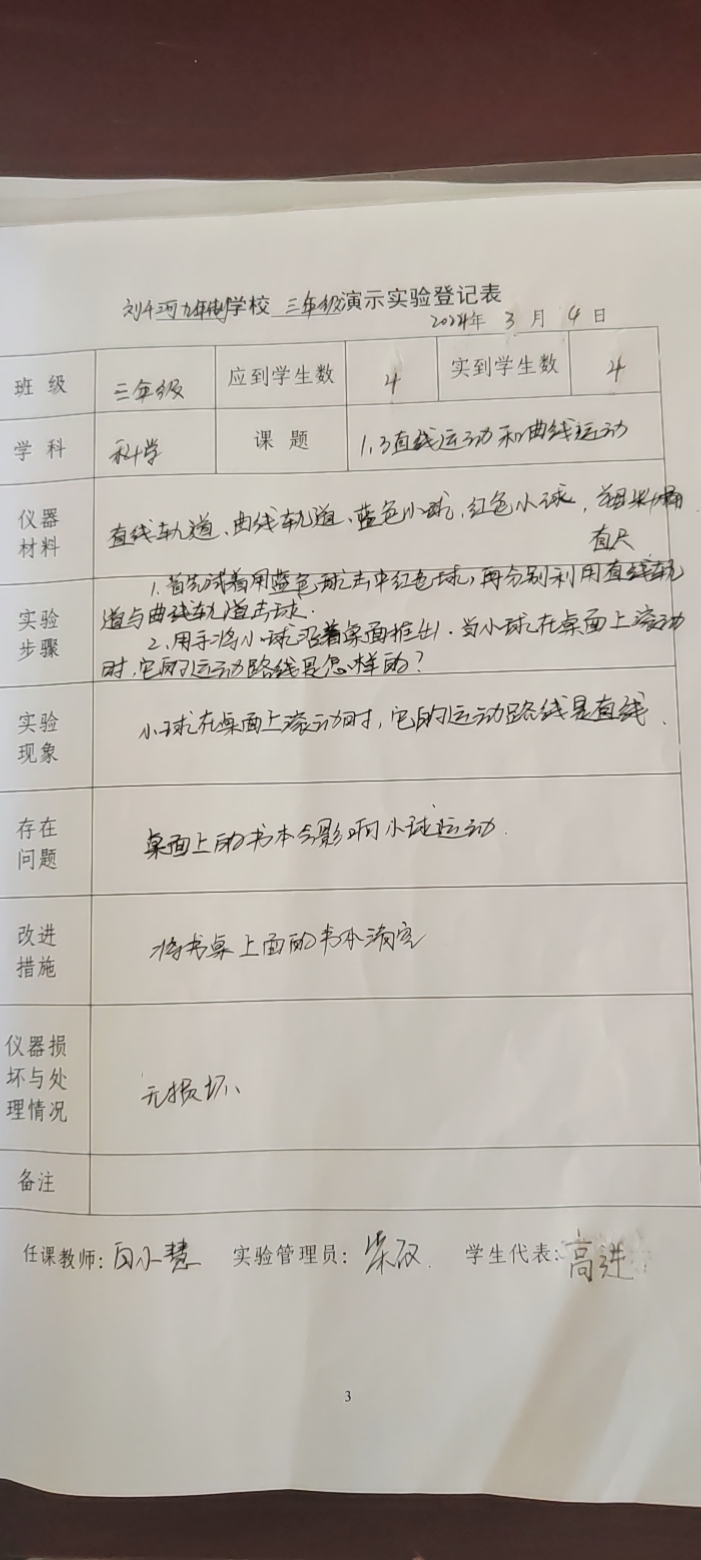 九年制学校 三年级演示实验登记表
2024年 3 月 4 日
班 级 三年级 应到学生数 4 实到学生数 4
学 科 科学 课 题 1.3直线运动和曲线运动
仪器材料 直线轨道、曲线轨道、蓝色小球、红色小球,
直尺
实验步骤 1.首先试着用蓝色球击中红色球,再分别利用直线轨
道与曲线轨道击球.
2.用手将小球沿着桌面推出.当小球在桌面上滚动
时,它的运动路线是怎样的?
实验现象 小球在桌面上滚动时,它的运动路线是直线.
存在问题 桌面上的书本会影响小球运动.
改进措施 将书桌上面的书本清空
仪器损坏与处理情况 无损坏、
备注
任课教师: 白小慧 实验管理员: 学生代表: 高进
3